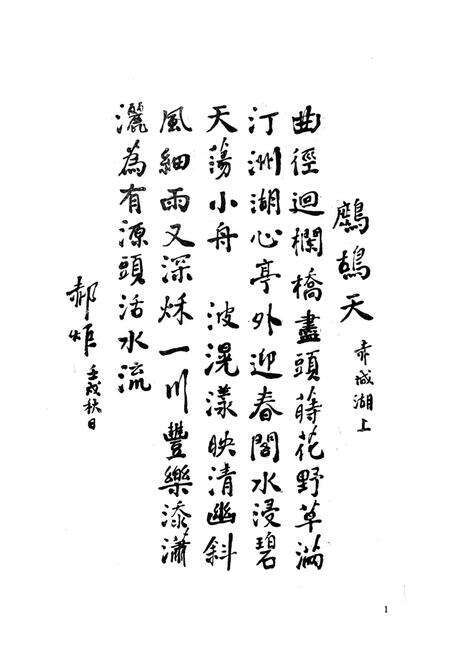 鷓鴣天 赤城湖上
曲徑迴欄橋盡頭蒔花野草滿
汀洲湖心亭外迎春閣水浸碧
天蕩小舟 波滉漾映清幽斜
風細雨又深秋一川豐樂添瀟
灑為有源頭活水流
郝炬 壬戌秋日
1